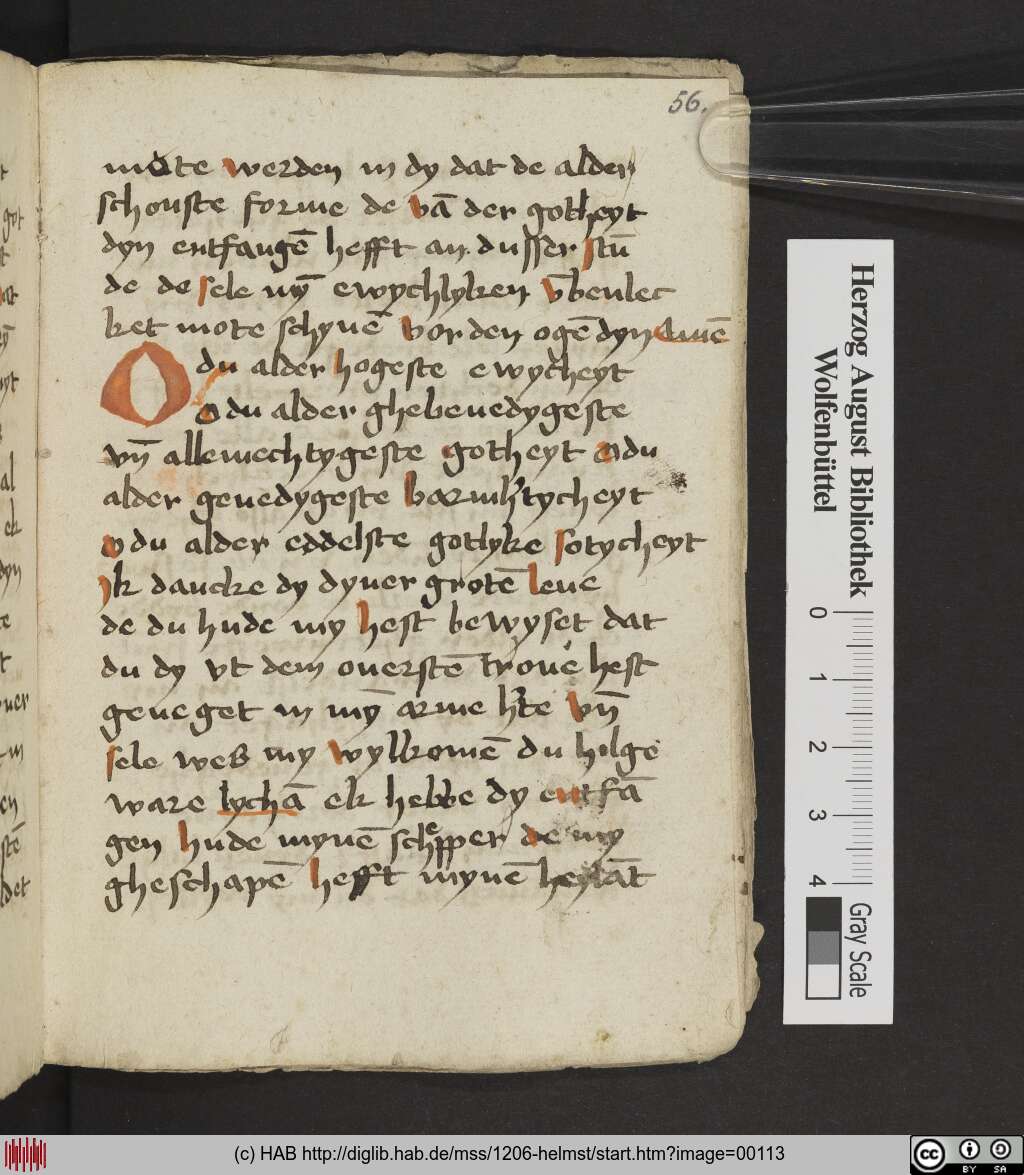 56.
mote werden in dy dat de alder
schonste forme de vā der gotheyt
dyn entfangē hefft an dusser stū
de de sele myn̄ ewychlyken v̄bevlec
ket mote schynē vor den ogē dyn Amē
O du alder hogeste ewycheyt
o du alder ghebenedygeste
vn̄ allemechtygeste gotheyt o du
alder genedygeste barmh'tycheyt
o du alder eddelste gotlyke sotycheyt
ik dancke dy dyner grotē leue
de du hude my hest bewyset dat
du dy vt dem ouerstē trone hest
geneget in mȳ arme h'te vn̄
sele wes my wylkomē du hilge
ware lychā ek hebbe dy entfā
gen hude mynē schepper de my
gheschapē hefft mynē heylāt
Herzog August Bibliothek
Wolfenbüttel
0 1 2 3 4
Gray Scale
(c) HAB http://diglib.hab.de/mss/1206-helmst/start.htm?image=00113
cc BY SA